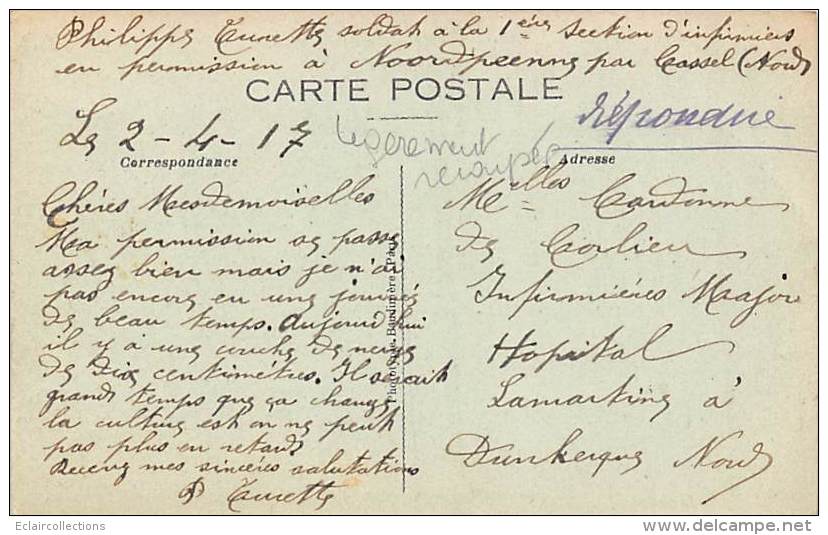 Philippe Turette soldat à la 1ère section d'infirmiers
en permission à Noordpeenne par Cassel (Nord)
CARTE POSTALE
Répondue
Le 2-4-17
légèrement
recoupée
Correspondance
Adresse
Chères Mesdemoiselles
Ma permission se passe
assez bien mais je n'ai
pas encore eu une journée
de beau temps. Aujourd'hui
il y à une couche de neige
de dix centimètres. Il serait
grand temps que ça change
la culture est on ne peut
pas plus en retard
Recevez mes sincères salutations
P Turette
Melles Cardonne
de Corlieu
Infirmières Major
Hopital
Lamartine à
Dunkerque Nord
Phototypie Baudinière, Paris
Eclaircollections
www.delcampe.net